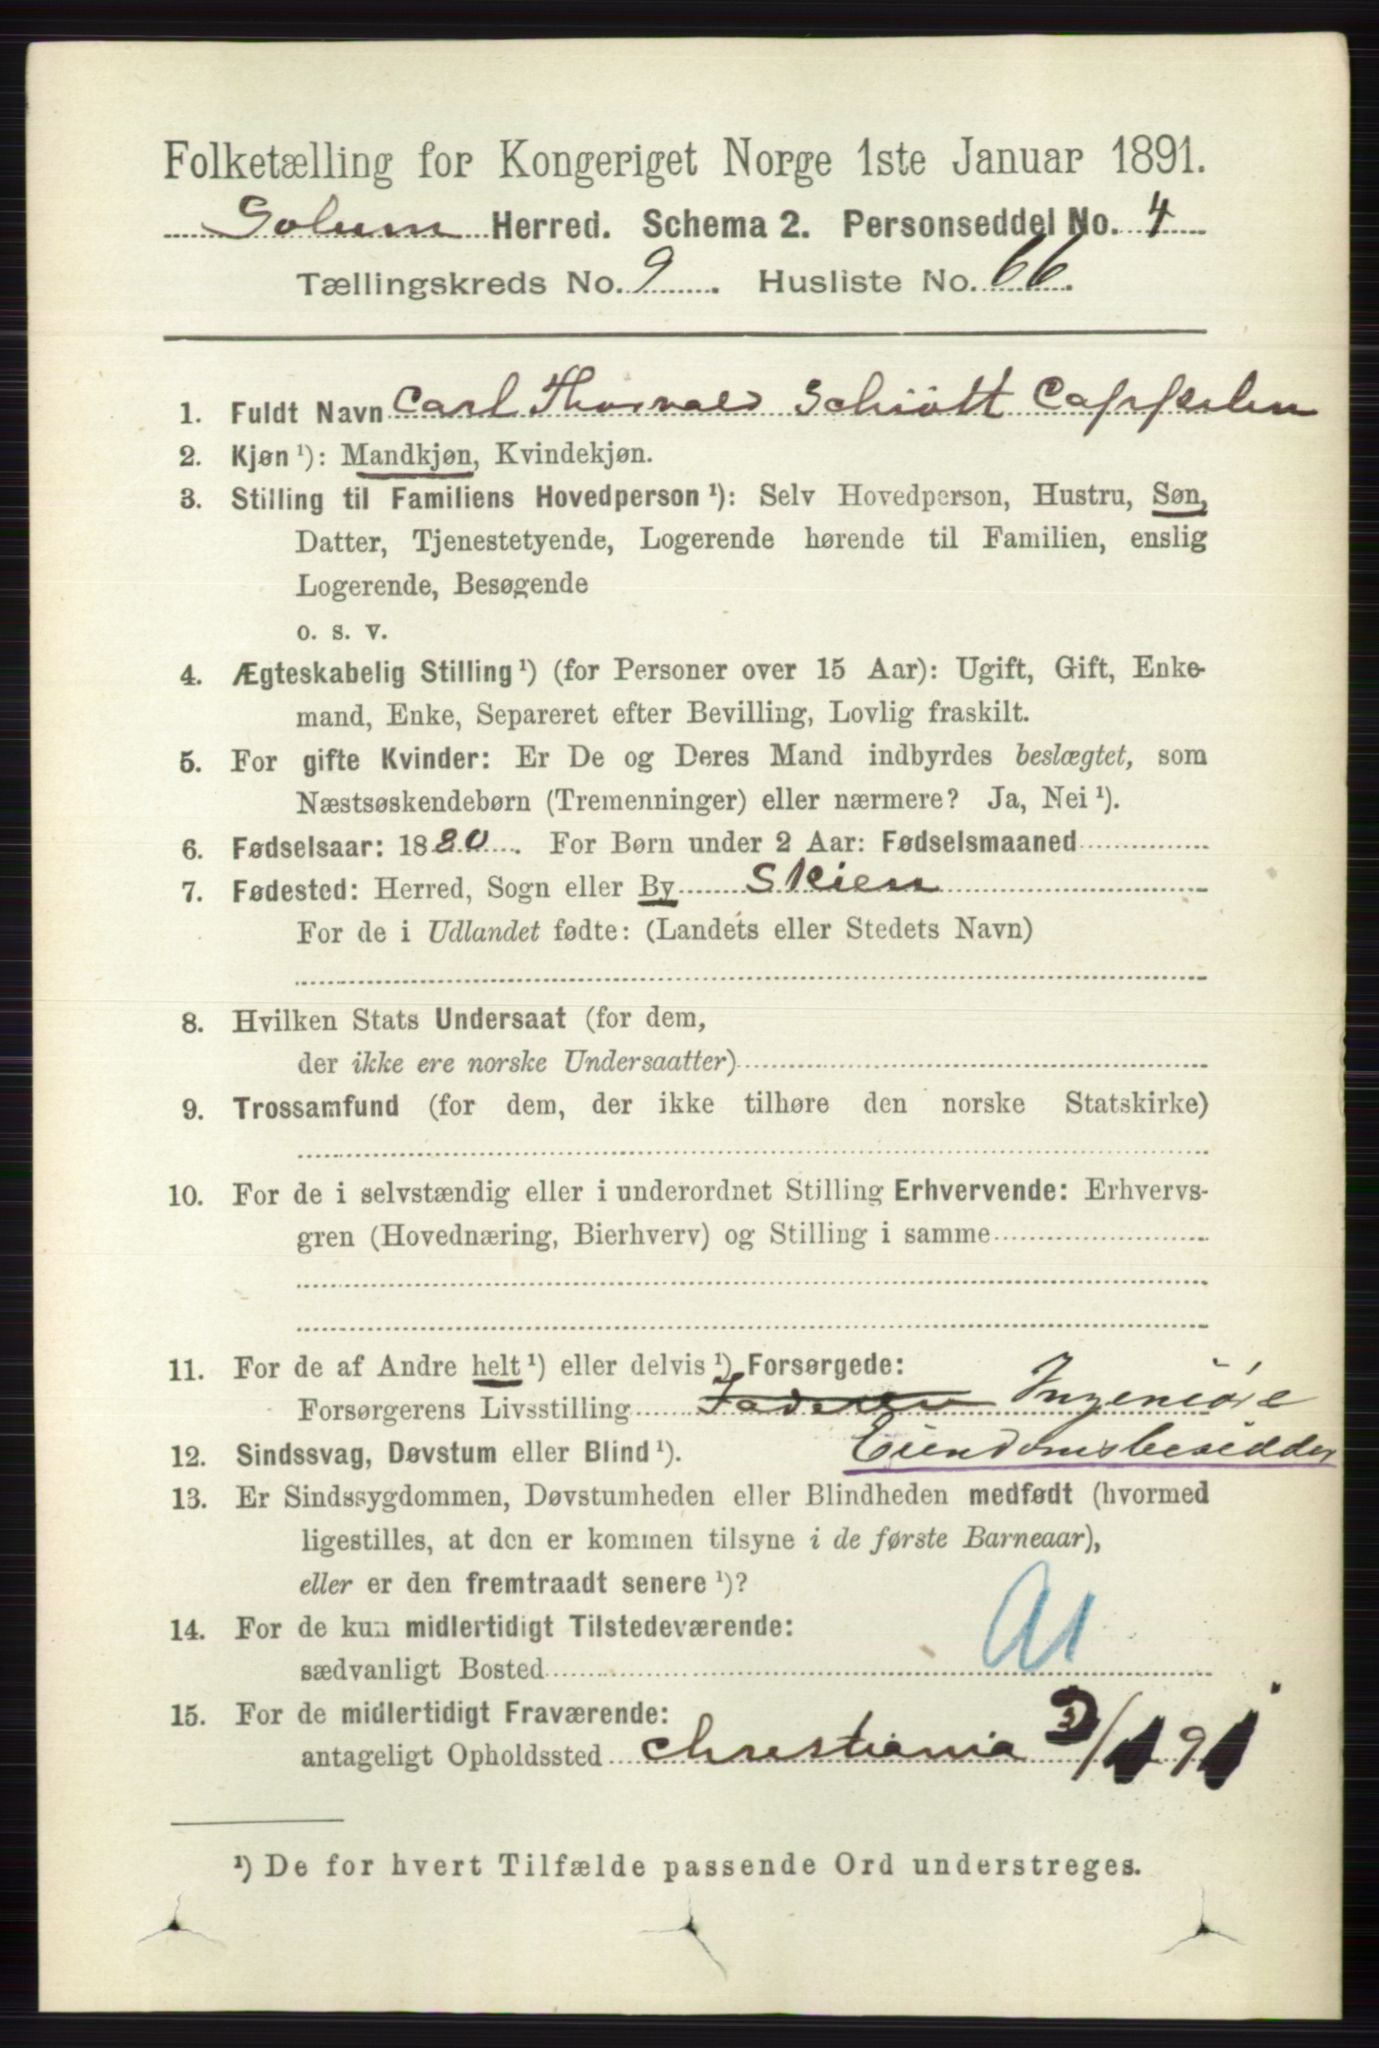 Folketælling for Kongeriget Norge 1ste Januar 1891.
Solum Herred. Schema 2. Personseddel No. 4
Tællingskreds No. 9. Husliste No. 66.
1. Fuldt Navn Carl Thorvald Schiøtt Cappelen
2. Kjøn ¹): Mandkjøn, Kvindekjøn.
3. Stilling til Familiens Hovedperson ¹): Selv Hovedperson, Hustru, Søn,
Datter, Tjenestetyende, Logerende hørende til Familien, enslig
Logerende, Besøgende
o. s. v.
4. Ægteskabelig Stilling ¹) (for Personer over 15 Aar): Ugift, Gift, Enke-
mand, Enke, Separeret efter Bevilling, Lovlig fraskilt.
5. For gifte Kvinder: Er De og Deres Mand indbyrdes beslægtet, som
Næstsøskendebørn (Tremenninger) eller nærmere? Ja, Nei ¹).
6. Fødselsaar: 1880. For Børn under 2 Aar: Fødselsmaaned
7. Fødested: Herred, Sogn eller By Skien
For de i Udlandet fødte: (Landets eller Stedets Navn)
8. Hvilken Stats Undersaat (for dem,
der ikke ere norske Undersaatter)
9. Trossamfund (for dem, der ikke tilhøre den norske Statskirke)
10. For de i selvstændig eller i underordnet Stilling Erhvervende: Erhvervs-
gren (Hovednæring, Bierhverv) og Stilling i samme
11. For de af Andre helt ¹) eller delvis ¹) Forsørgede:
Forsørgerens Livsstilling Faderen Ingeniøre
Eiendomsbesidder
12. Sindssvag, Døvstum eller Blind ¹).
13. Er Sindssygdommen, Døvstumheden eller Blindheden medfødt (hvormed
ligestilles, at den er kommen tilsyne i de første Barneaar),
eller er den fremtraadt senere ¹)?
14. For de kun midlertidigt Tilstedeværende:
sædvanligt Bosted
15. For de midlertidigt Fraværende:
antageligt Opholdssted Christiania
¹) De for hvert Tilfælde passende Ord understreges.